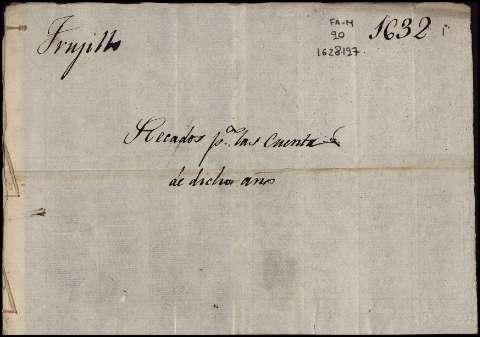 Trujillo
FA-M
90
1628197
1632
Recados pa. las Cuentas
de dicho año